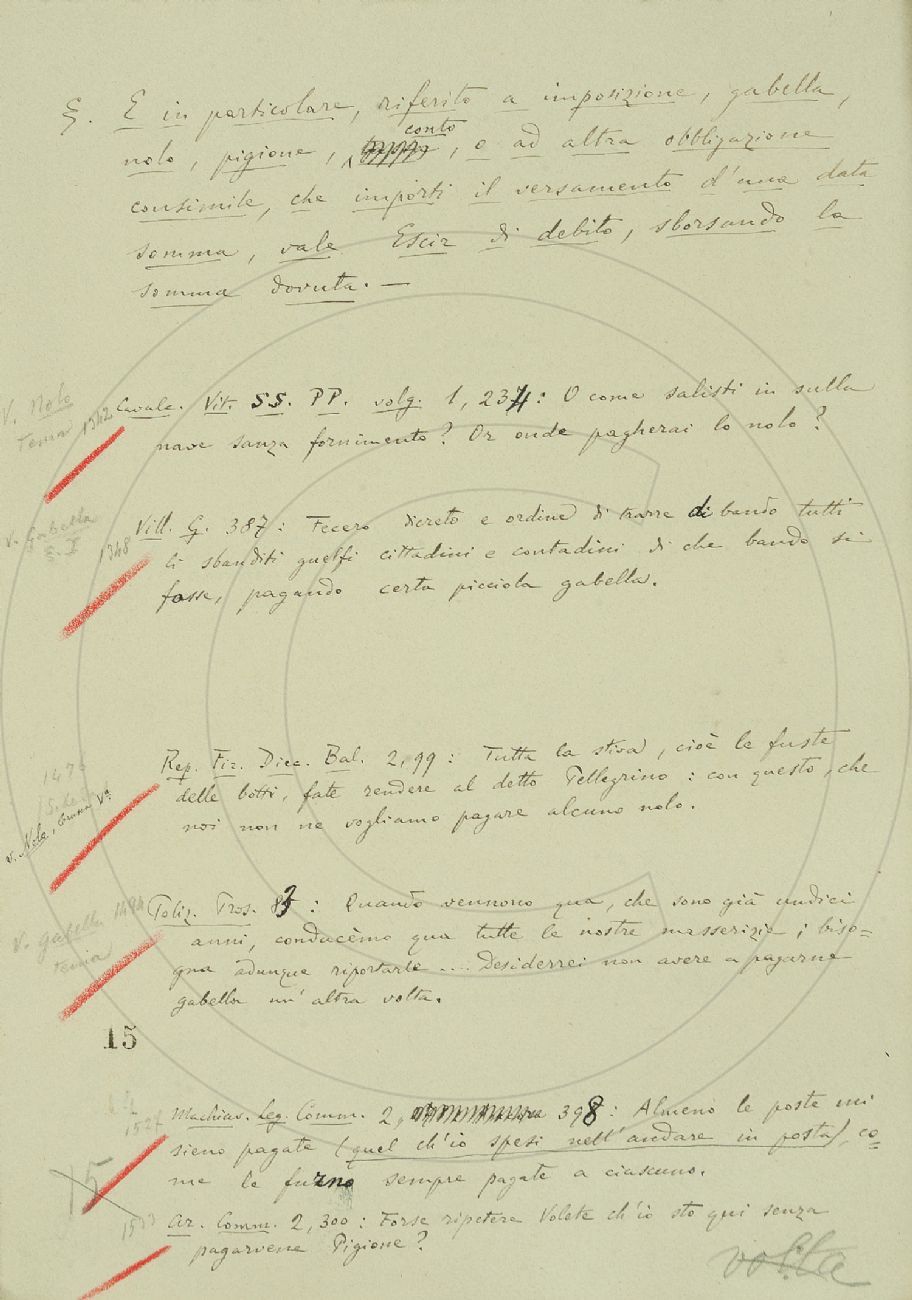 §. E in particolare, riferito a imposizione, gabella,
nolo, pigione, conto, e ad altra obbligazione
consimile, che importi il versamento d'una data
somma, vale Escir di debito, sborsando la
somma dovuta. —
V. Nolo
Tema 1342
Cavalc. Vit. SS. PP. volg. 1, 237: O come salisti in sulla
nave sanza fornimento? Or onde pagherai lo nolo?
V. Gabella
§. I
1348
Vill. G. 387: Fecero dicreto e ordine di trarre di bando tutti
li sbanditi guelfi cittadini e contadini di che bando si
fosse, pagando certa picciola gabella.
Rep. Fir. Diec. Bal. 2, 99: Tutta la stiva, cioè le fuste
delle botti, fate rendere al detto Pellegrino: con questo, che
noi non ne vogliamo pagare alcuno nolo.
v. Nolo, tema
V. gabella 1494
tema
Poliz. Pros. 83: Quando vennono qua, che sono già undici
anni, conducemo qua tutte le nostre masserizie; biso=
gna adunque riportarle .... Desiderrei non avere a pagarne
gabella un'altra volta.
15
1527
Machiav. Leg. Comm. 2, 398: Almeno le poste mi
sieno pagate (quel ch'io spesi nell'andare in posta), co=
me le furno sempre pagate a ciascuno.
15
1533
Ar. Comm. 2, 300: Forse ripetere Volete ch'io sto qui senza
pagarvene Pigione?
volta